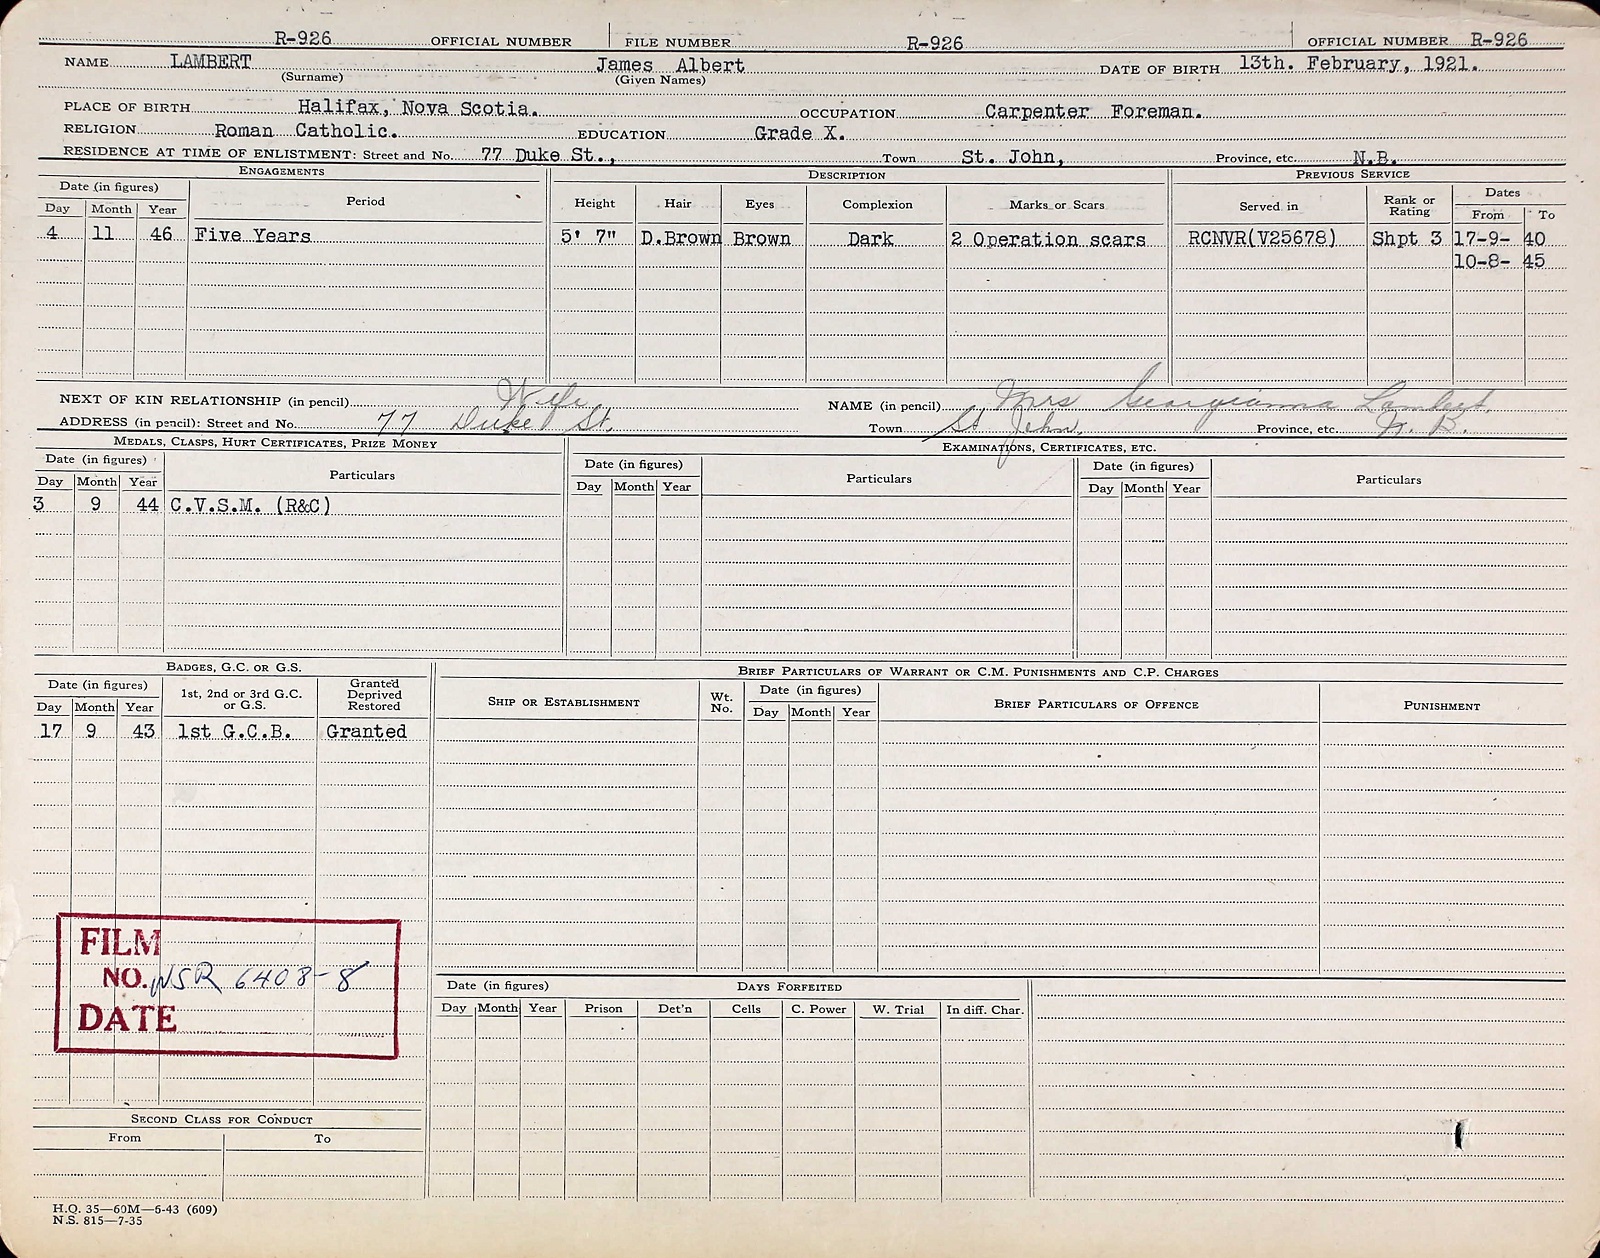 R-926 OFFICIAL NUMBER FILE NUMBER R-926 OFFICIAL NUMBER R-926
NAME LAMBERT James Albert DATE OF BIRTH 13th. February, 1921.
(Surname) (Given Names)
PLACE OF BIRTH Halifax, Nova Scotia. OCCUPATION Carpenter Foreman.
RELIGION Roman Catholic. EDUCATION Grade X.
RESIDENCE AT TIME OF ENLISTMENT: Street and No. 77 Duke St., Town St. John, Province, etc. N.B.
ENGAGEMENTS DESCRIPTION PREVIOUS SERVICE
Date (in figures) Period Height Hair Eyes Complexion Marks or Scars Served in Rank or Rating Dates
Day Month Year From To
4 11 46 Five Years 5' 7" D.Brown Brown Dark 2 Operation scars RCNVR(V25678) Shpt 3 17-9- 40
10-8- 45
NEXT OF KIN RELATIONSHIP (in pencil) Wife NAME (in pencil) Mrs Georgianna Lambert.
ADDRESS (in pencil): Street and No. 77 Duke St. Town St John, Province, etc. N. B.
MEDALS, CLASPS, HURT CERTIFICATES, PRIZE MONEY EXAMINATIONS, CERTIFICATES, ETC.
Date (in figures) Particulars Date (in figures) Particulars Date (in figures) Particulars
Day Month Year Day Month Year Day Month Year
3 9 44 C.V.S.M. (R&C)
BADGES, G.C. OR G.S. BRIEF PARTICULARS OF WARRANT OR C.M. PUNISHMENTS AND C.P. CHARGES
Date (in figures) 1st, 2nd or 3rd G.C. or G.S. Granted Deprived Restored SHIP OR ESTABLISHMENT Wt. No. Date (in figures) BRIEF PARTICULARS OF OFFENCE PUNISHMENT
Day Month Year Day Month Year
17 9 43 1st G.C.B. Granted
FILM
NO. NSR 6403-8
DATE
Date (in figures) DAYS FORFEITED
Day Month Year Prison Det'n Cells C. Power W. Trial In diff. Char.
SECOND CLASS FOR CONDUCT
From To
H.Q. 35—60M—6-43 (609)
N.S. 815—7-35